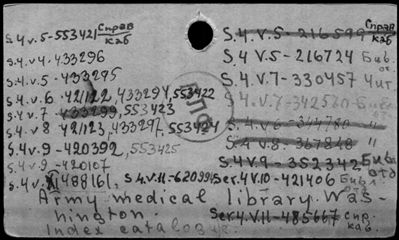 S.4v.5-553421 Справ каб
S.4v.4.433296
S.4.v.5-433295
S.4.v.6 421122, 433294, 553422
S.4v.7-433299, 553423
S.4v8 421123, 433297, 553424
S.4v.9-420392, 553425
S.4v.9-420107
S.4v. 488161. S.4.V.11-620991
S.4.V.5-216599 Справ каб
S.4V.5-216724 Биб. от.
S.4.V.7-330457 Чит.
S.4.V.7-342580 Библ
S.4.V.6-344780 "
S.4.V.8-367848 "
S.4V9-352342 Биб отд
Ser.4V.10-421406 Библ отв
Ser.4.V.11-485667 спр. каб.
Army medical library. Was-
hington.
Index catalogue.